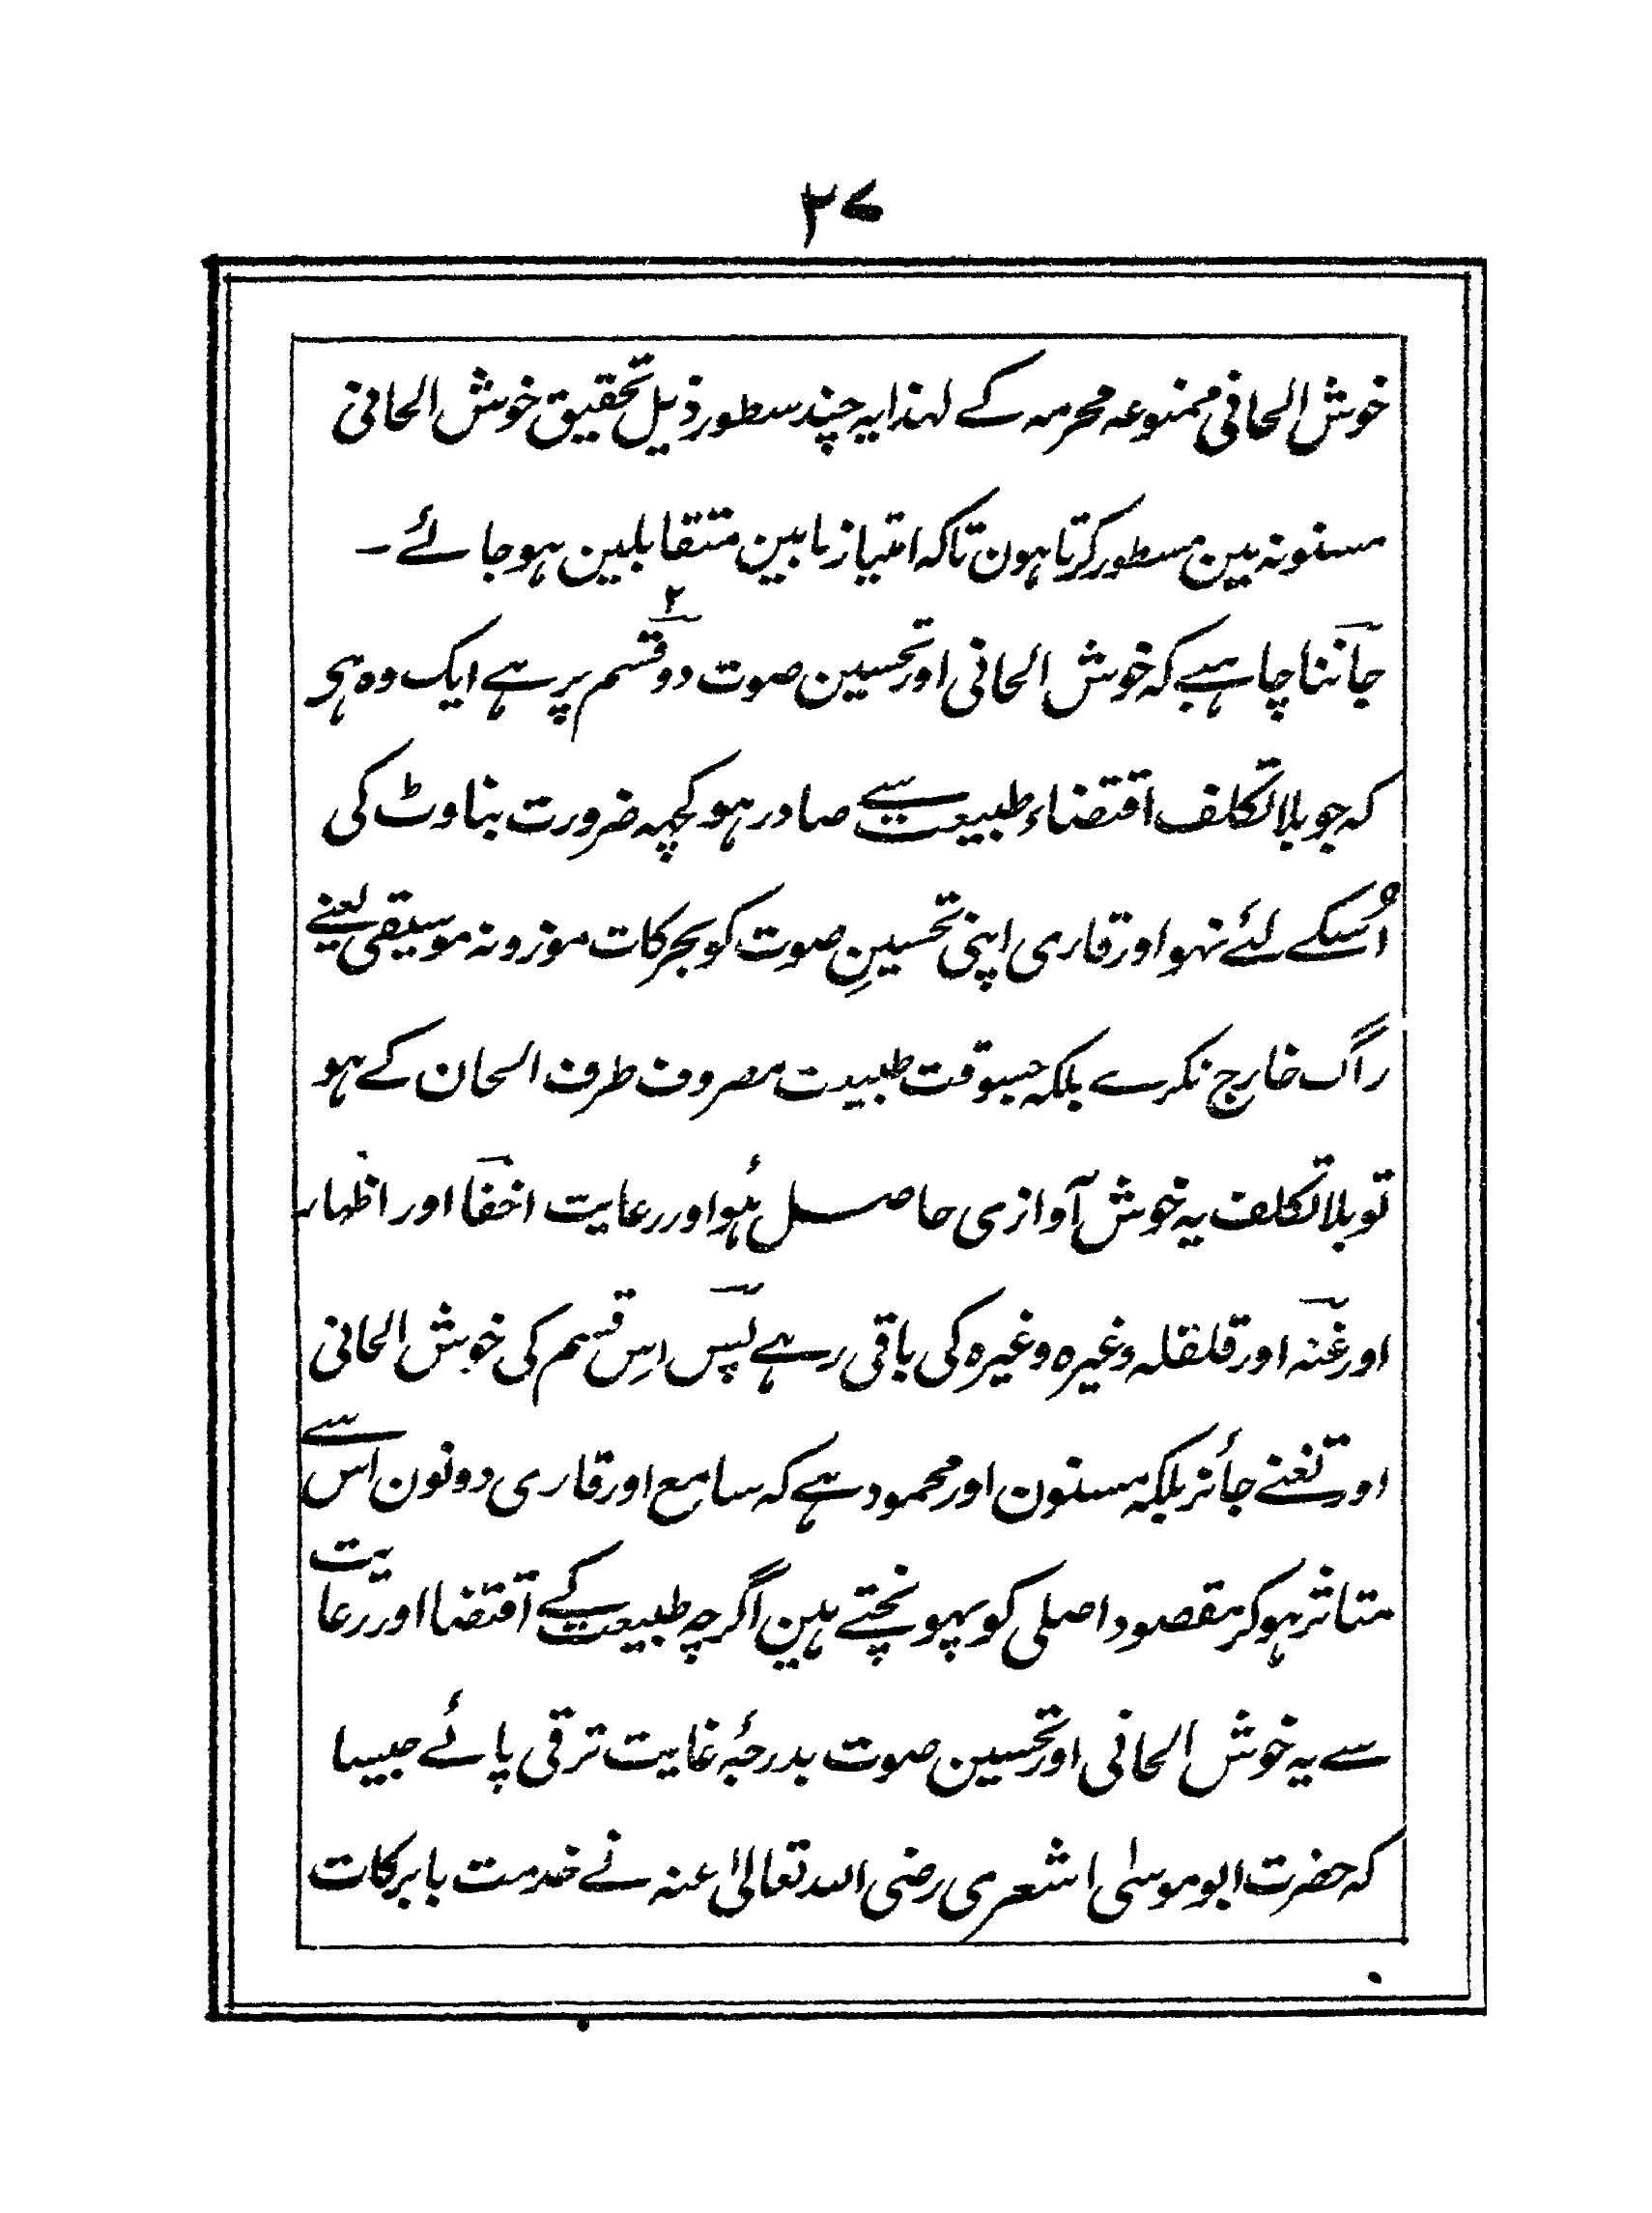 ۲۷
خوش الحانی ممنوعہ محرمہ کے لہذا یہ چند سطور ذیل تحقیق خوش الحانی
مسنونہ مین مسطور کرتا ہون تاکہ امتیاز مابین متقابلین ہو جائے ۔
جاننا چاہیے کہ خوش الحانی اور تحسین صوت دو۲ قسم پر ہے ایک وہ ہی
کہ جو بلا تکلف اقتضاء طبیعت سے صادر ہو کچہہ ضرورت بناوٹ کی
اُسکے لئے نہو اور قاری اپنی تحسینِ صوت کو بحرکات موزونہ موسیقی لعنے
راگ خارج نکرے بلکہ جسوقت طبیعت مصروف طرف الحان کے ہو
تو بلا تکلف یہ خوش آوازی حاصل ہُو اور رعایت اخفا اور اظہار
اور غنہ اور قلقلہ وغیرہ وغیرہ کی باقی رہے پس اِس قسم کی خوش الحانی
اور تغنے جائز بلکہ مسنون اور محمود ہے کہ سامع اور قاری دونون اس سے
متاثر ہو کر مقصود اصلی کو پہونچتے ہین اگرچہ طبیعت کے اقتضا اور رعایت
سے یہ خوش الحانی اور تحسین صوت بدرجۂ غایت ترقی پائے جیسا
کہ حضرت ابو موسٰی اشعری رضی اللہ تعالیٰ عنہ نے خدمت بابرکات